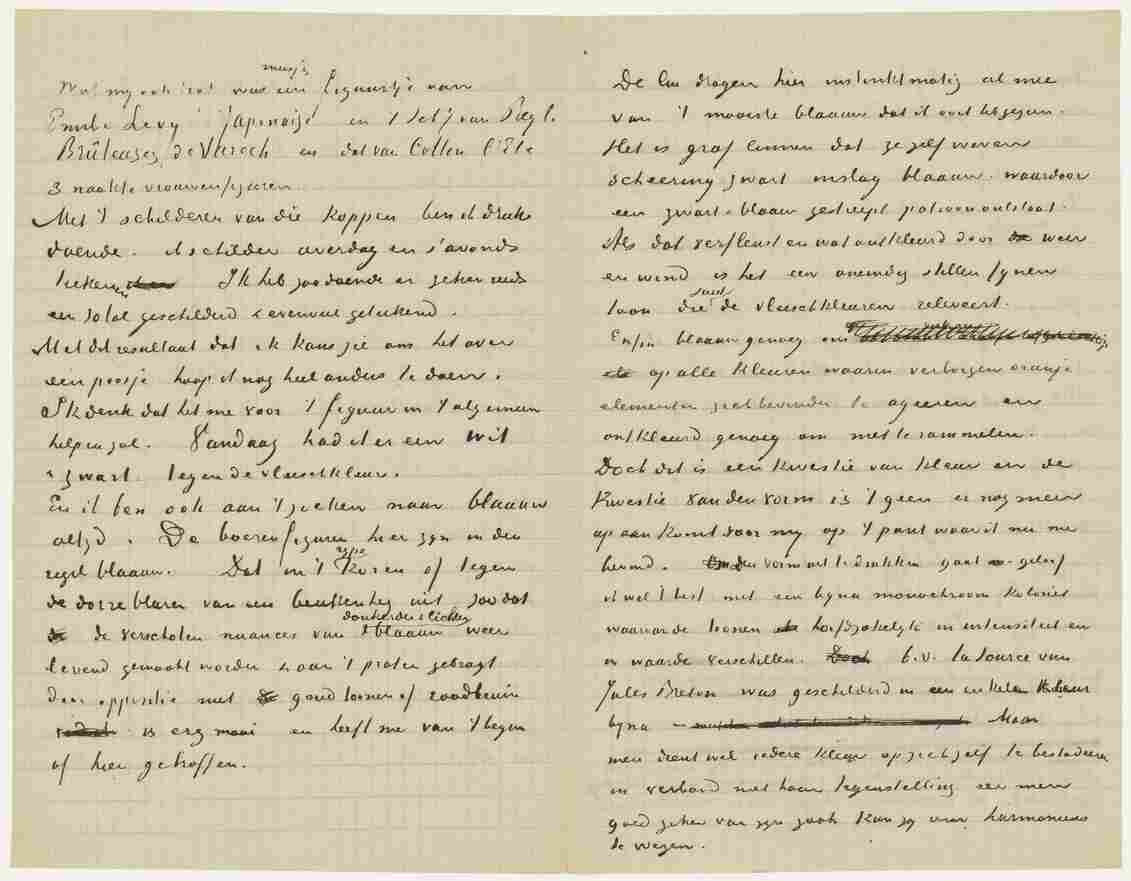 meisje
Wat my ook trof was een figuurtje van
Emile Levy Japonaise en 't schij van Beyle
Brûleuses de Varech en dat van Collin l'Eté
3 naakte vrouwenfiguren.
Met 't schilderen van die koppen ben ik druk
doende. ik schilder overdag en s'avonds
teeken Ik heb zoodoende er zeker reeds
een 30tal geschilderd & evenveel geteekend.
Met dit resultaat dat ik kans zie om het over
een poosje hoop ik nog heel anders te doen.
Ik denk dat het me voor 't figuur in 't algemeen
helpen zal. Vandaag had ik er een wit
& zwart tegen de vleeschkleur.
En ik ben ook aan 't zoeken naar blaauw
altyd. De boerenfiguren hier zyn in den
rype
regel blaauw. Dat in 't koren of tegen
de dorre blaren van een beukenheg uit zoodat
donkerder & lichter
de verscholen nuances van blaauw weer
levend gemaakt worden & aan 't praten gebragt
door oppositie met goudtoonen of roodbruin
is erg mooi en heeft me van 't begin
af hier getroffen.
De lui dragen hier instinktmatig al mee
van 't mooiste blaauw dat ik ooit heb gezien.
Het is grof linnen dat ze zelf weven
scheering zwart inslag blaauw. waardoor
een zwart & blaauw gestreept patroon ontstaat.
Als dat verflenst en wat ontkleurd door weer
en wind is het een oneindig stillen fynen
juist
toon die de vleeschkleuren releveert.
Enfin blaauw genoeg om
op alle kleuren waarin verborgen oranje
elementen zich bevinden te ageeren en
ontkleurd genoeg om niet te rammelen.
Doch dit is een kwestie van kleur en de
kwestie van den vorm is 't geen er nog meer
op aan komt voor my op 't punt waar ik nu me
bevind. den vorm uit te drukken gaat geloof
ik wel 't best met een byna monochroom koloriet
waarvan de toonen hoofdzakelyk in intensiteit en
in waarde verschillen. b.v. la source van
Jules Breton was geschilderd in een enkele kleur
byna Maar
men dient wel iedere kleur op zichzelf te bestudeeren
in verband met haar tegenstelling eer men
goed zeker van zyn zaak kan zyn van harmonieus
te wezen.